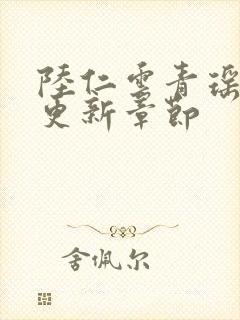 陸仁雲青瑶
更新章節
舍佩尔